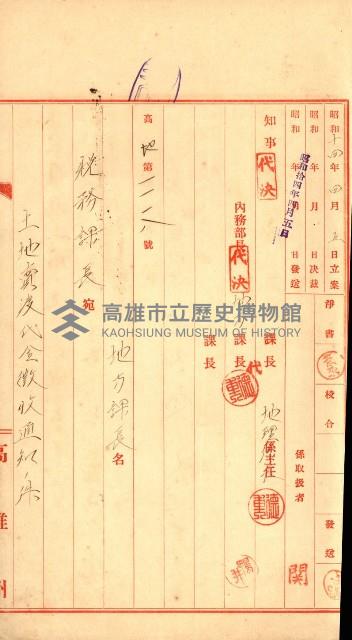 昭和十四年四月五日立案
昭和 年 月 日決裁
昭和 年 月 日發送
昭和拾四年四月五日
淨書
校合
發送
係取扱者
關
知事
代決
內務部長
代決
地 課長
課長
代
課長
地理係主任
高地第 號
稅務課長宛
地方課長名
土地賣渡代金徵收通知ノ件
高雄州
高雄市立歷史博物館
KAOHSIUNG MUSEUM OF HISTORY